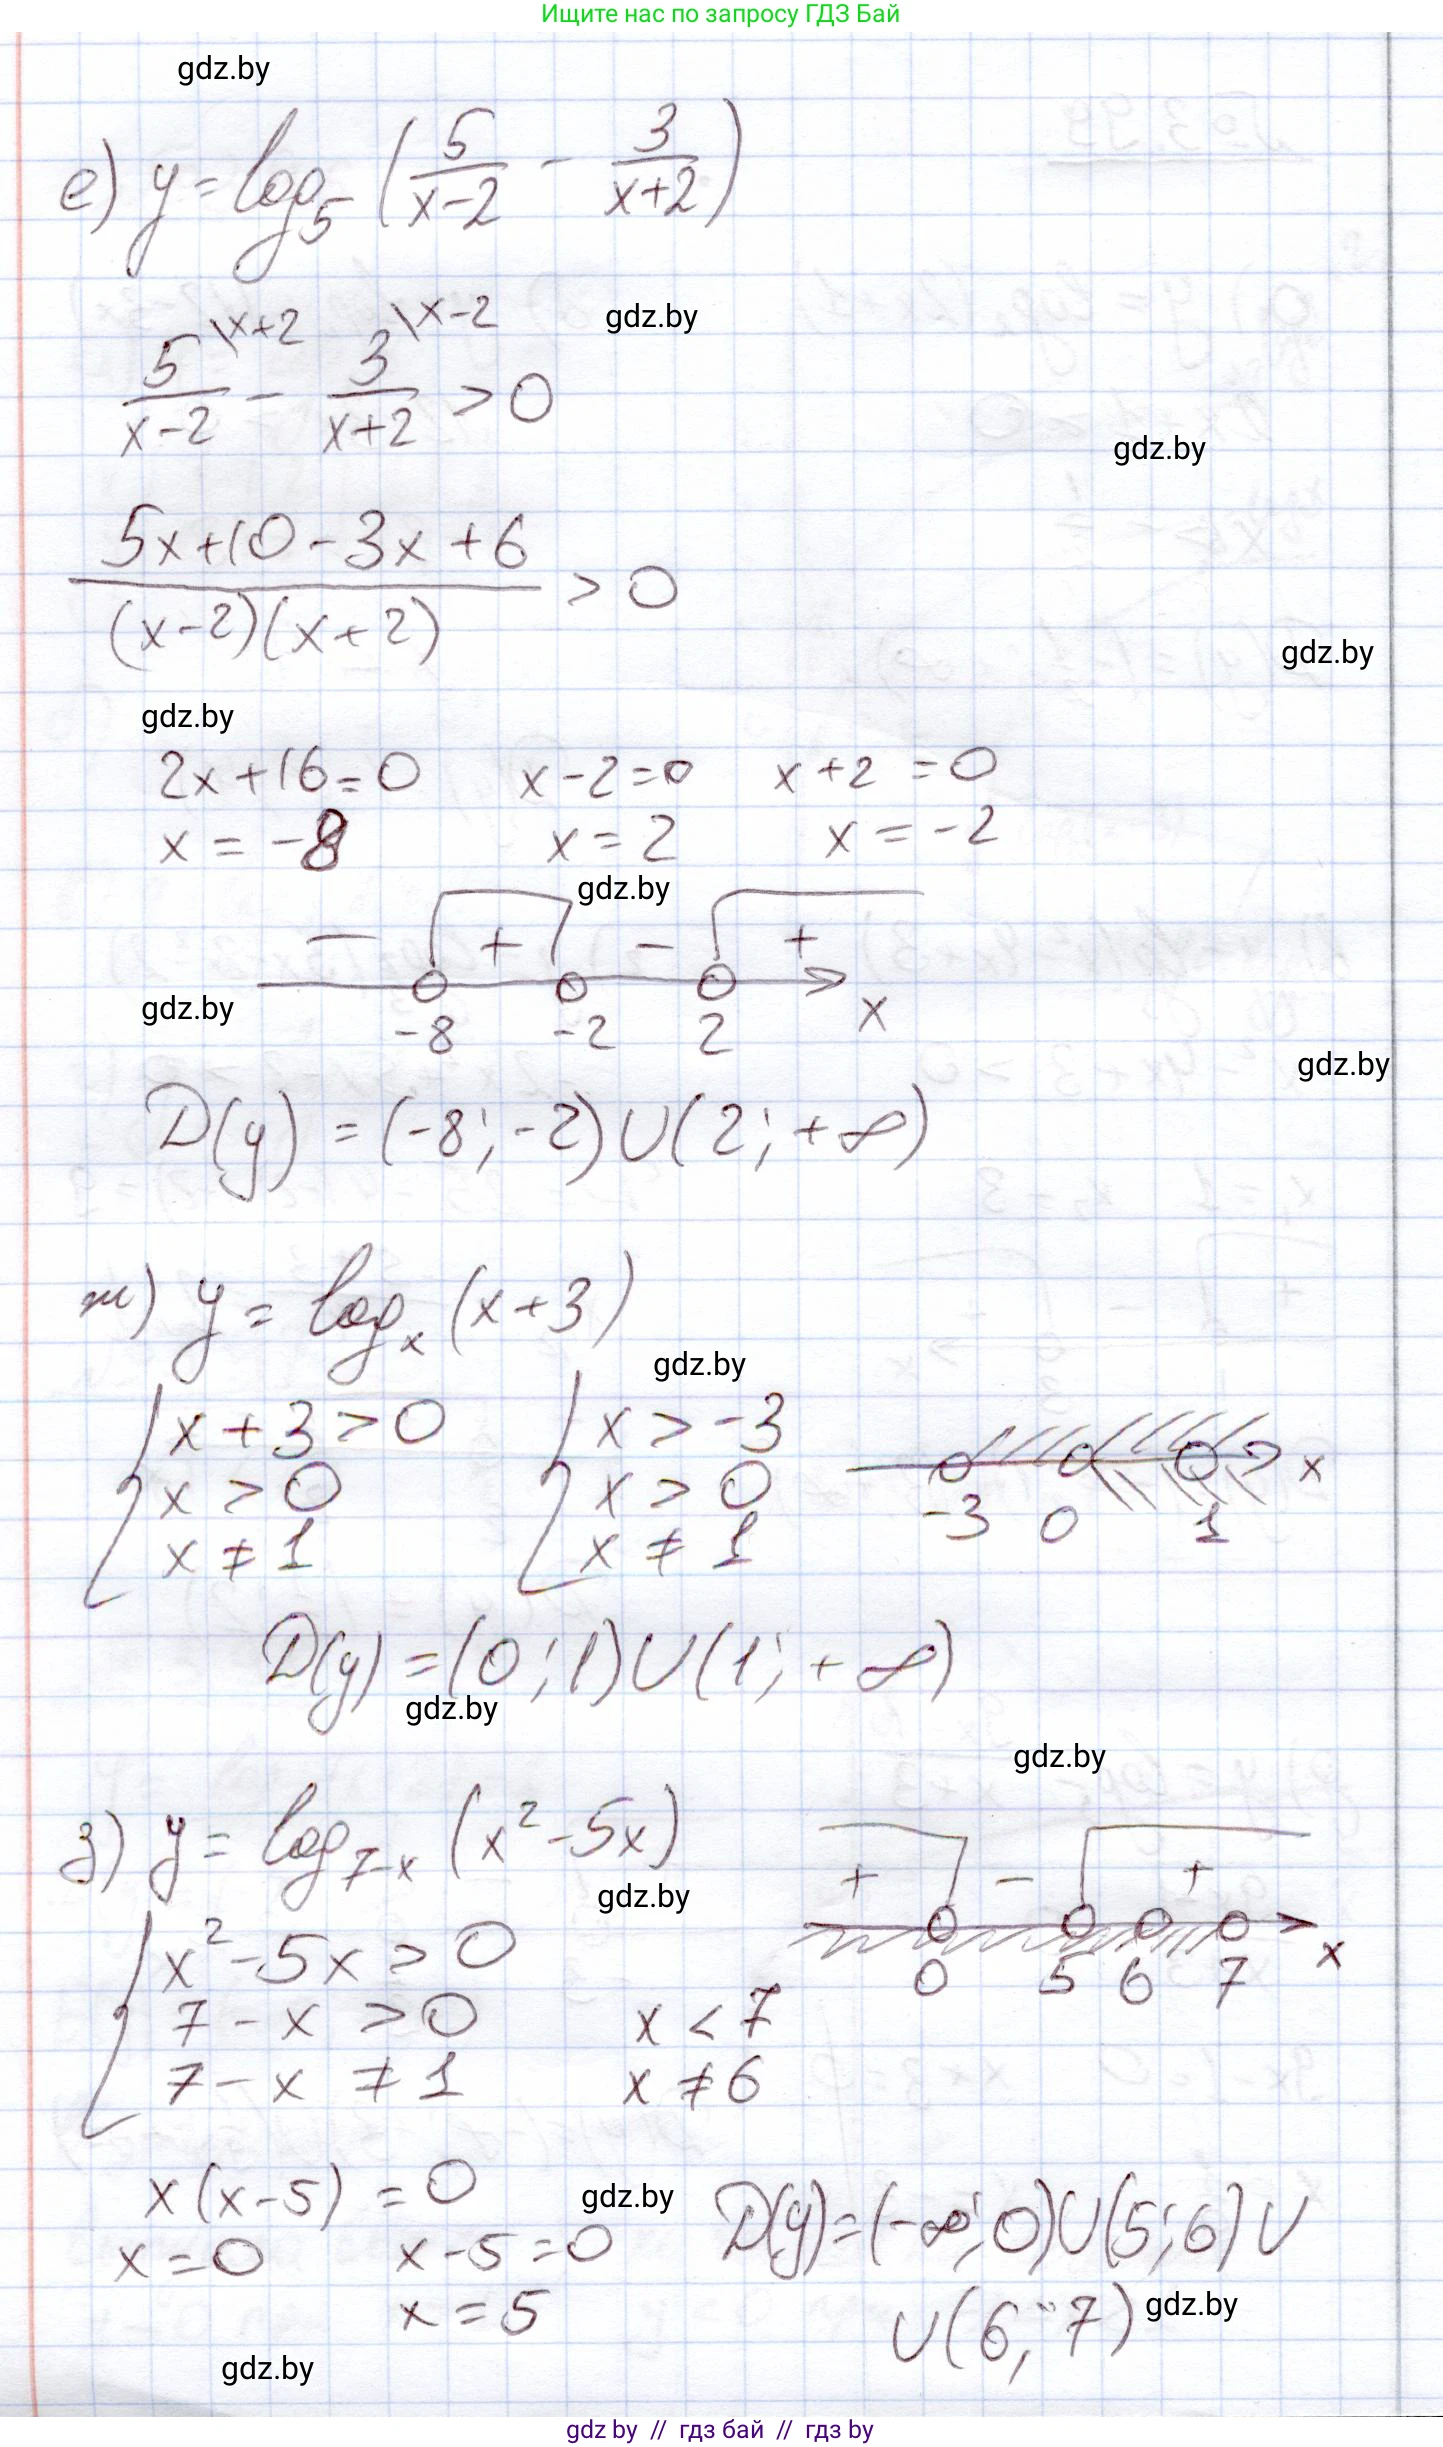 Ищите нас по запросу ГДЗ Бай
gdz.by
е) y = log₅ (5/(x-2) - 3/(x+2))
5\x+2/(x-2) - 3\x-2/(x+2) > 0
gdz.by
gdz.by
(5x+10-3x+6)/((x-2)(x+2)) > 0
gdz.by
gdz.by
2x+16=0 x-2=0 x+2=0
x = -8 x = 2 x = -2
gdz.by
− + − +
gdz.by
-8 -2 2 x
gdz.by
D(y) = (-8; -2) ∪ (2; +∞)
ж) y = logₓ (x+3)
gdz.by
{ x+3 > 0 { x > -3
x > 0 x > 0 x
x ≠ 1 x ≠ 1 -3 0 1
D(y) = (0; 1) ∪ (1; +∞)
gdz.by
gdz.by
з) y = log₇₋ₓ (x²-5x)
gdz.by
+ − +
0 5 6 7 x
{ x²-5x > 0
7-x > 0 x < 7
7-x ≠ 1 x ≠ 6
x(x-5) = 0
gdz.by
x = 0 x-5 = 0 D(y) = (-∞; 0) ∪ (5; 6) ∪
x = 5 ∪ (6; 7)
gdz.by
gdz.by
gdz by // гдз бай // гдз by